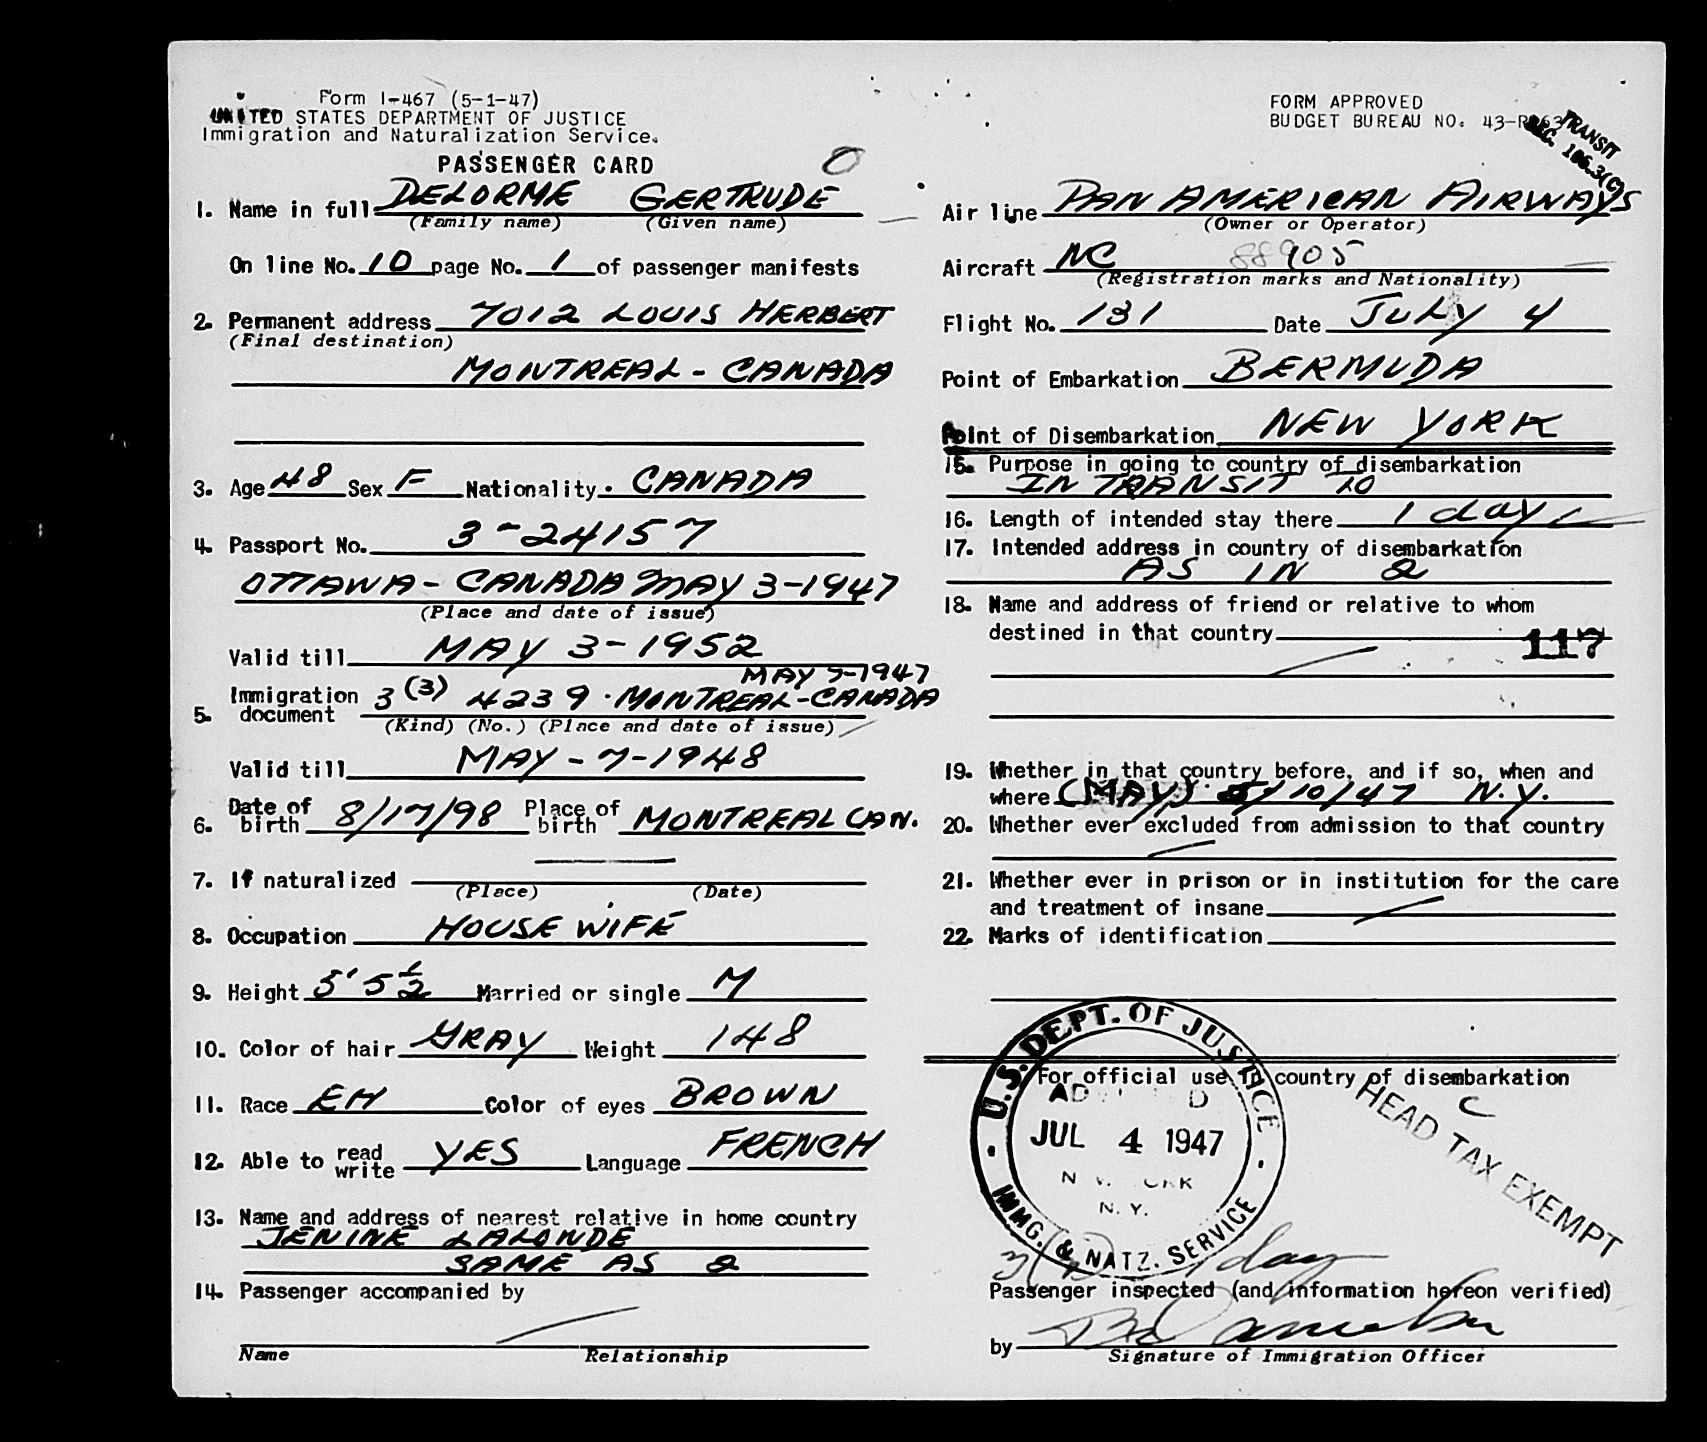 Form I-467 (5-1-47)
UNITED STATES DEPARTMENT OF JUSTICE
Immigration and Naturalization Service.
PASSENGER CARD
O
1. Name in full DELORME GERTRUDE
(Family name) (Given name)
On line No. 10 page No. 1 of passenger manifests
2. Permanent address 7012 LOUIS HERBERT
(Final destination)
MONTREAL - CANADA
3. Age 48 Sex F Nationality. CANADA
4. Passport No. 3-24157
OTTAWA - CANADA MAY 3-1947
(Place and date of issue)
Valid till MAY 3-1952
MAY 7-1947
5. Immigration document 3 (3) 4239 · MONTREAL-CANADA
(Kind) (No.) (Place and date of issue)
Valid till MAY-7-1948
6. Date of birth 8/17/98 Place of birth MONTREAL CAN.
7. If naturalized
(Place) (Date)
8. Occupation HOUSE WIFE
9. Height 5' 5 1/2 Married or single M
10. Color of hair GRAY Weight 148
11. Race EH Color of eyes BROWN
12. Able to read write YES Language FRENCH
13. Name and address of nearest relative in home country
JENINE LALONDE
SAME AS 2
14. Passenger accompanied by
Name Relationship
FORM APPROVED
BUDGET BUREAU NO. 43-
TRANSIT
SEC. 106.3(C)
Air line PAN AMERICAN AIRWAYS
(Owner or Operator)
Aircraft NC 88905
(Registration marks and Nationality)
Flight No. 131 Date JULY 4
Point of Embarkation BERMUDA
Point of Disembarkation NEW YORK
15. Purpose in going to country of disembarkation
IN TRANSIT TO
16. Length of intended stay there 1 day
17. Intended address in country of disembarkation
AS IN 2
18. Name and address of friend or relative to whom
destined in that country
117
19. Whether in that country before, and if so, when and
where (MAY) 5/10/47 N.Y.
20. Whether ever excluded from admission to that country
21. Whether ever in prison or in institution for the care
and treatment of insane
22. Marks of identification
For official use in country of disembarkation
C
HEAD TAX EXEMPT
U.S. DEPT. OF JUSTICE
JUL 4 1947
N.Y.
IMMG. & NATZ. SERVICE
day
Passenger inspected (and information hereon verified)
by
Signature of Immigration Officer